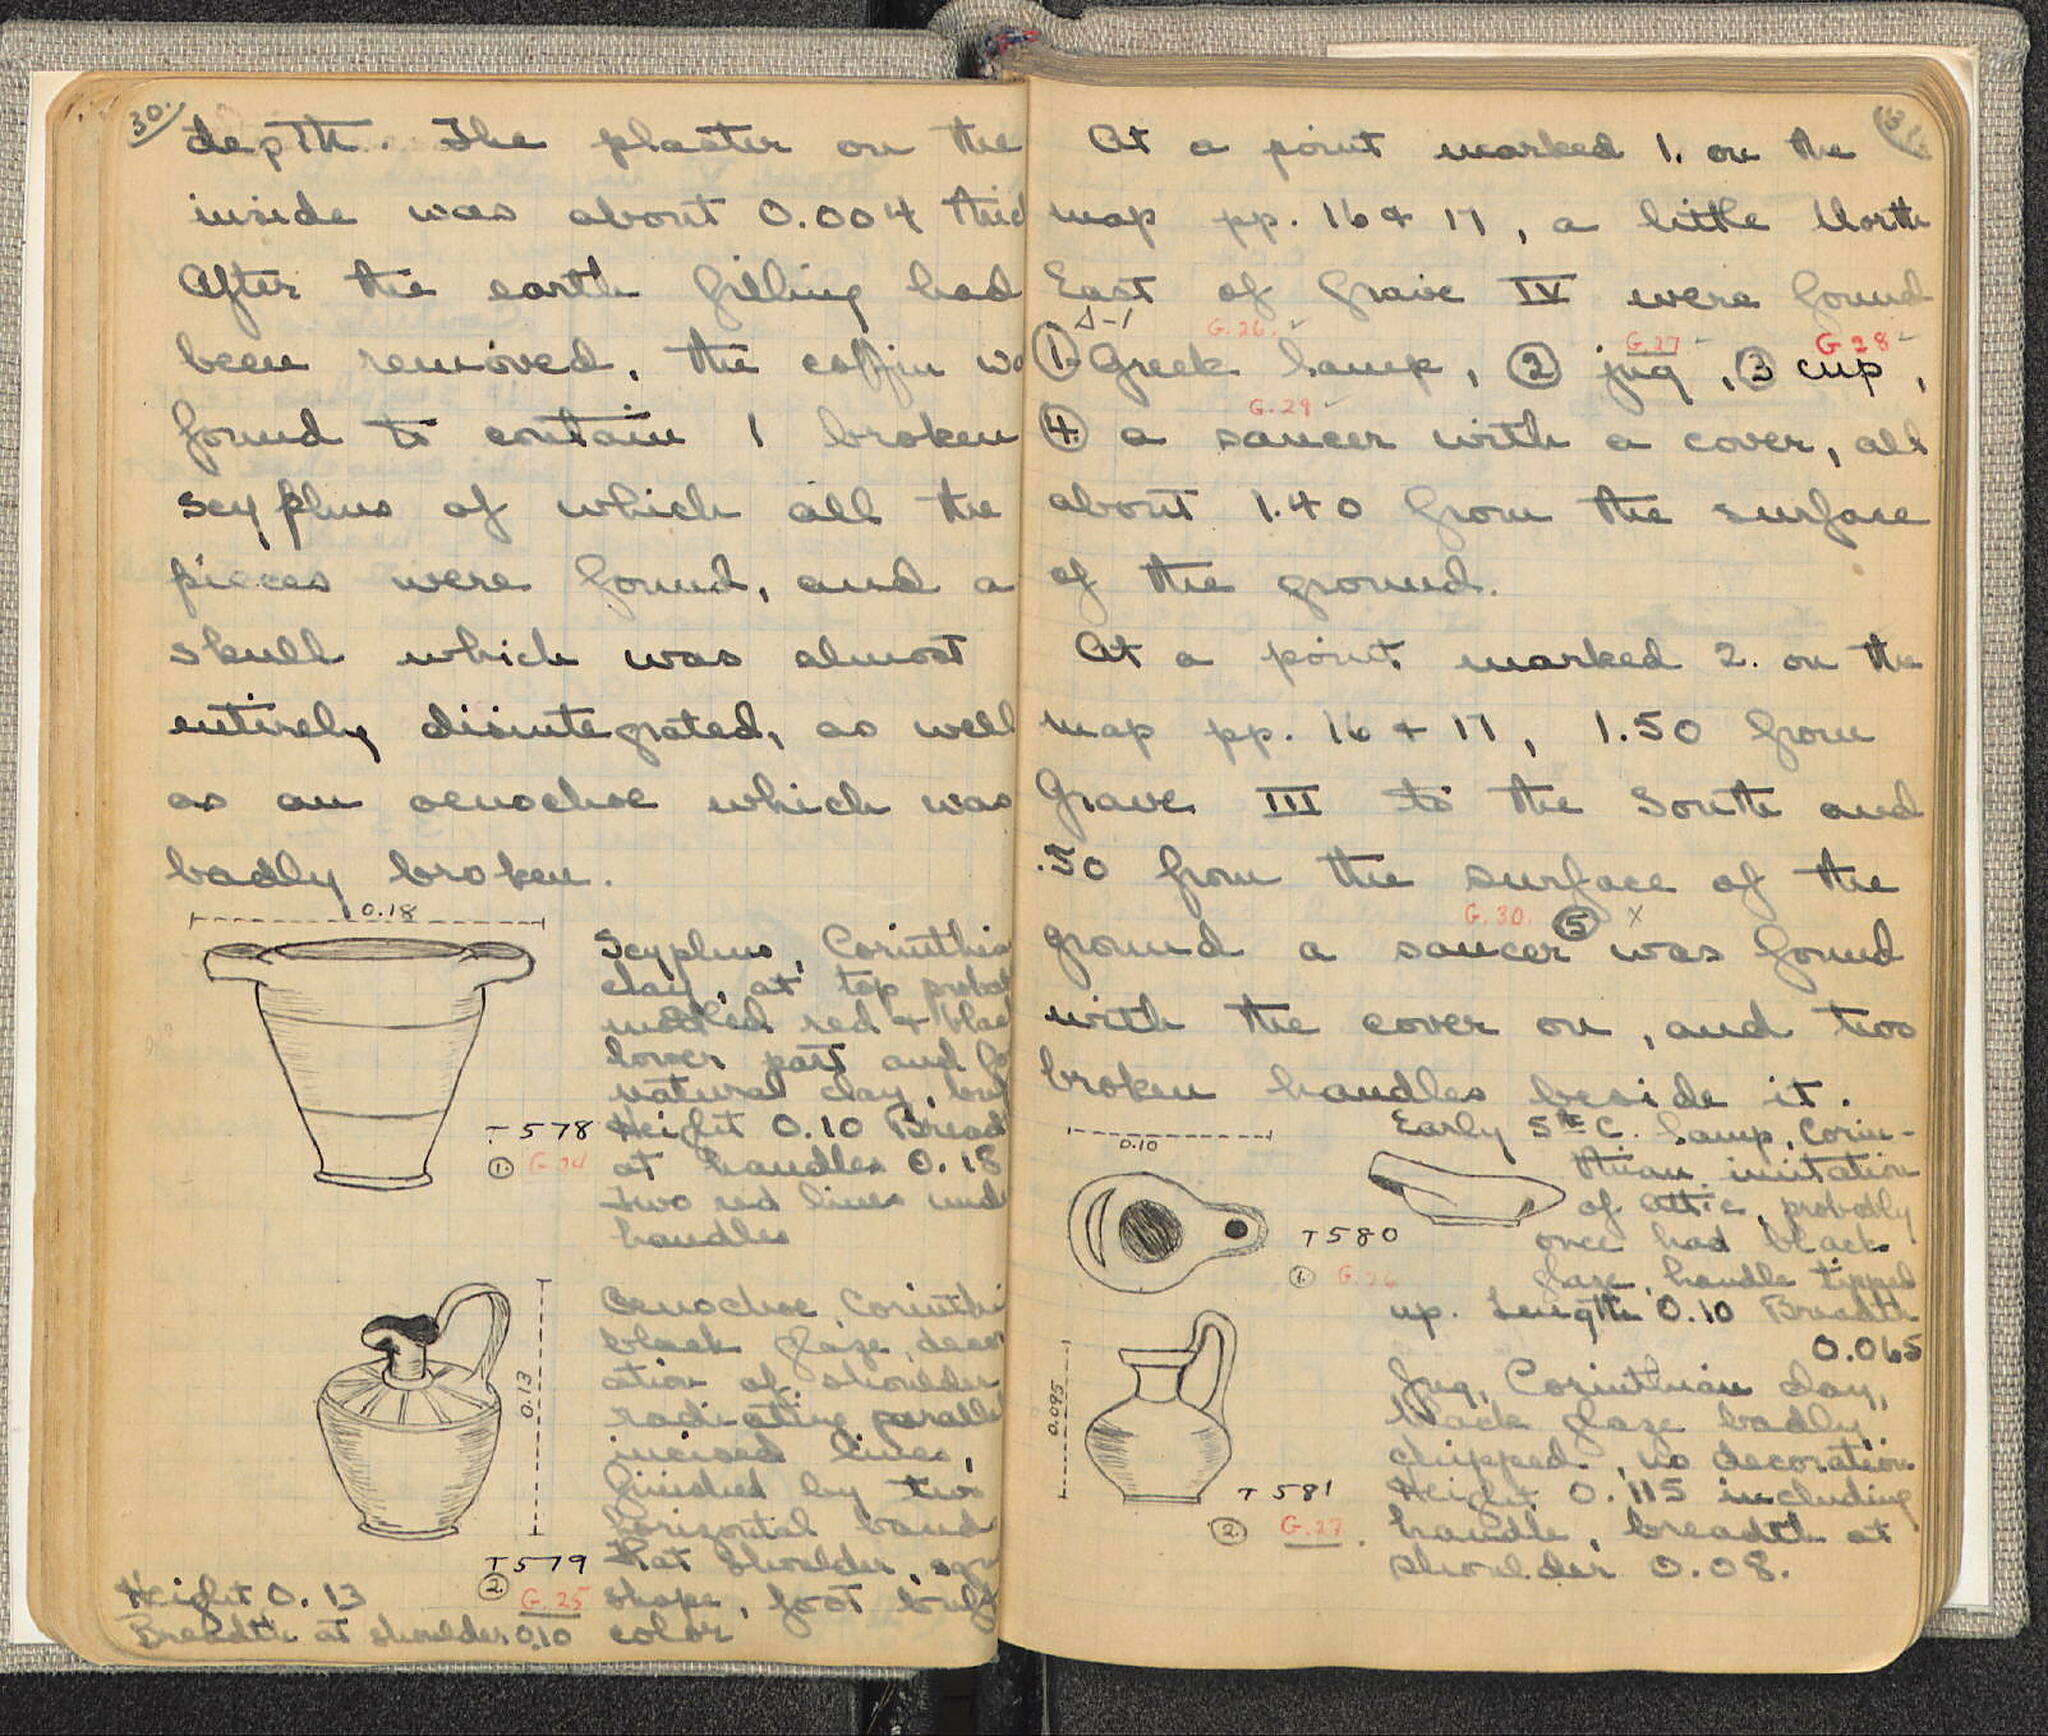 30.
depth. The plaster on the
inside was about 0.004 thick
After the earth filling had
been removed, the coffin
found to contain 1 broken
scyphus of which all the
pieces were found, and a
skull which was almost
entirely disintegrated, as well
as an oenochoe which was
badly broken.
0.18
Scyphus, Corinthia
clay, at top probab
mottled red + blac
lower part and fo
natural clay, buf
Height 0.10 Bread
at handles 0.18
two red lines und
handles
T 578
1. G.24
Oenochoe, Corinthi
black glaze, decor
ation of shoulder
radiating parallel
incised lines,
finished by two
horizontal bands
at shoulder,
shape, foot buff
color
0.13
T 579
2. G.25
Height 0.13
Breadth at shoulder 0.10
31.
At a point marked 1. on the
map pp. 16 + 17, a little North
East of Grave IV were found
Δ-1 G.26. G.27 G 28
1. Greek lamp, 2 jug, 3 cup,
G.29
4. a saucer with a cover, all
about 1.40 from the surface
of the ground.
At a point marked 2. on the
map pp. 16 + 17, 1.50 from
Grave III to the South and
.50 from the surface of the
G.30. 5 X
ground a saucer was found
with the cover on, and two
broken handles beside it.
0.10
Early 5th C. lamp, Corin-
thian imitation
of Attic, probably
once had black
glaze, handle tipped
up. Length 0.10 Breadth
0.065
T 580
1. G.26
0.095
Jug, Corinthian clay,
black glaze badly
chipped, no decoration
Height 0.115 including
handle, breadth at
shoulder 0.08.
T 581
2. G.27.